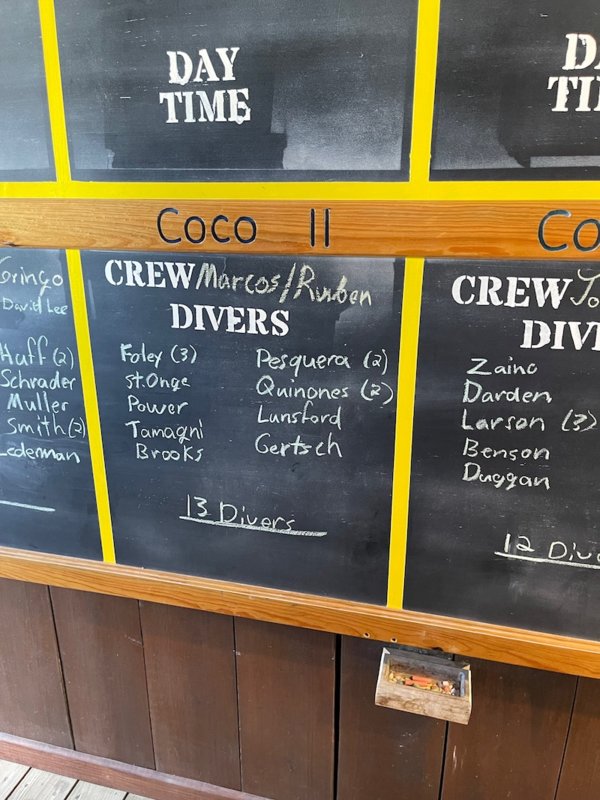 DAY
TIME
COCO II
Gringo
David Lee
Huff (2)
Schrader
Muller
Smith (2)
Lederman
CREW Marcos/Ruben
DIVERS
Foley (3)
St.Onge
Power
Tamagni
Brooks
Pesquera (2)
Quinones (2)
Lunsford
Gertsch
13 Divers
CREW
Zaino
Darden
Larson (3)
Benson
Duggan
12